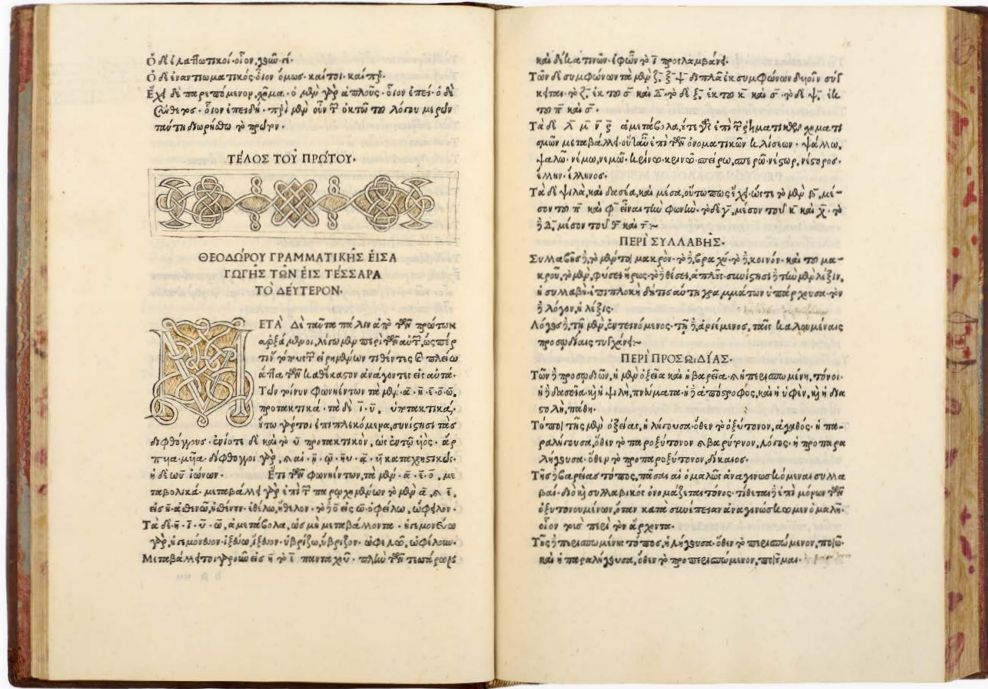 Ὁ δὲ ἐλαττωτικοί· οἷον, γοῦν·
Ὁ δὲ ἐναντιωματικός· οἷον ὅμως· καίτοι· καίπερ·
Ἔχει δὲ παρεπόμενον, σχῆμα· ὁ μὲν γὰρ ἁπλοῦς· οἷον ἐπεί· ὁ δὲ
σύνθετος· οἷον ἐπειδή· περὶ μὲν οὖν τῶν ὀκτὼ τοῦ λόγου μερῶν
ταύτῃ διῃρήσθω τὸ πρῶτον·
ΤΕΛΟΣ ΤΟΥ ΠΡΩΤΟΥ·
ΘΕΟΔΩΡΟΥ ΓΡΑΜΜΑΤΙΚΗΣ ΕΙΣΑ
ΓΩΓΗΣ ΤΩΝ ΕΙΣ ΤΕΣΣΑΡΑ
ΤΟ ΔΕΥΤΕΡΟΝ·
ΜΕΤΑ ΔΕ ταῦτα πάλιν ἀπὸ τῶν πρώτων
ἀρξάμενοι, λέγωμεν περὶ τῶν αὐτῶν, ὥσπερ
τι τῶν εἰρημένων τιθέντες πλείω
ἅττα τῶν καθέκαστον ἀνάγοντες εἰς αὐτά·
Τῶν τοίνυν φωνηέντων, τὰ μὲν· α· η· ε· ο· ω,
προτακτικά· τὰ δὲ ι· υ, ὑποτακτικά,
οὕτω γάρ τοι ἐπιπλεκόμενα, συνίστησι τὰς
διφθόγγους· ἐνίοτε δὲ καὶ τὸ υ προτακτικόν, ὡς ἐν τῷ υἱός· ἅρ
πυια· μυῖα· δίφθογγοι γὰρ, αι· ηυ· α· η καταχρηστικῶς·
ἡ δὲ ωυ ἰώνων· Ἔτι τῶν φωνηέντων, τὰ μὲν· α· ε· ο, με
ταβολικά· μεταβάλλει γὰρ ἐπὶ τῶν παρῳχημένων τὸ μὲν α, ε,
εἰς η· ἀθινῶ, ἤθινον· ἐθέλω, ἤθελον· τὸ ο εἰς ω· ὀφείλω, ὤφειλον·
Τὰ δὲ η· ι· υ· ω, ἀμετάβολα, ὡς μὴ μεταβάλλοντα·
γὰρ, ὑβρίζω, ὕβριζον· ὠφελῶ, ὠφέλουν·
Μεταβάλλει τοι γὰρ εἰς η τὸ πανταχοῦ· πλὴν τῶν τεσσάρων
καὶ δέκα τινῶν· ἐφ' ὧν τὸ ι προσλαμβάνει·
Τῶν δὲ συμφώνων τὰ μὲν ζ· ξ· ψ· διπλᾶ· ἐκ συμφώνων δυοῖν σύγ
κειται· τὸ ζ, ἐκ τοῦ σ καὶ δ· τὸ δὲ ξ, ἐκ τοῦ κ καὶ σ· τὸ δὲ ψ, ἐκ
τοῦ π καὶ σ·
Τὰ δὲ λ μ ν ρ ἀμετάβολα, ὅτι ἐπὶ τῶν ῥηματικῶν σχηματι
σμῶν μεταβάλλει οὐδὲ ἐπὶ τῶν ὀνοματικῶν κλίσεων· ψάλλω,
ψαλῶ· νέμω, νεμῶ· κρίνω κρινῶ· σπείρω, σπερῶ· νέστωρ, νέστορος·
ἕλλην· ἕλληνος·
Τὰ δὲ ψιλά, καὶ δασέα, καὶ μέσα, οὕτω πως ἔχει, ὥστε τὸ μὲν β, μέ-
σον τοῦ π καὶ φ εἶναι τῇ φωνῇ· τὸ δὲ γ, μέσον τοῦ κ καὶ χ· τὸ
δὲ δ, μέσον τοῦ θ καὶ τ:~
ΠΕΡΙ ΣΥΛΛΑΒΗΣ·
Συλλαβῆς δὲ, τὸ μέν τοι μακρόν· τὸ δὲ βραχύ· τὸ δὲ κοινόν· καὶ τοῦ μα-
κροῦ, τὸ μὲν, φύσει· τὸ δὲ θέσει, ἀποτελεῖ συνίστησι δὲ τὴν μὲν λέξιν,
ἡ συλλαβὴ ἐπιπλοκὴ δή τις αὐτὴ γραμμάτων ὑπάρχουσα· τὸν
δὲ λόγον, ἡ λέξις·
Λόγος δὲ, τῇ μὲν ἐντεινόμενος· τῇ δὲ ἀνειμένος, ταῖς καλουμέναις
προσῳδίαις τυγχάνει:~
ΠΕΡΙ ΠΡΟΣΩΔΙΑΣ·
Τῶν δὲ προσῳδιῶν, ἡ μὲν ὀξεῖα καὶ ἡ βαρεῖα· καὶ ἡ περισπωμένη, τόνοι·
ἡ δὲ δασεῖα καὶ ἡ ψιλή, πνεύματα· ἡ δὲ ἀπόστροφος, καὶ ἡ ὑφέν, καὶ ἡ δια
στολή, πάθη·
Τόποι τῆς μὲν ὀξείας, ἡ λήγουσα· ὅθεν τὸ ὀξύτονον, ἀγαθός· ἡ πα-
ραλήγουσα, ὅθεν τὸ παροξύτονον καὶ βαρύτονον, λόγος· ἡ προπαρα
λήγουσα· ὅθεν τὸ προπαροξύτονον, δίκαιος·
Τῆς δὲ βαρείας τόπος, πᾶσαι αἱ ὁμαλῶς ἀναγινωσκόμεναι συλλα
βαί· διὸ καὶ συλλαβικὸς ὀνομάζεται τόνος· τίθεται δὲ ἐπὶ μόνων τῶν
ὀξυτονουμένων, ὅταν κατὰ συνέπειαν ἀναγινώσκωμεν ὁμαλῇ·
οἷον τοὺς περὶ τὸν ἄρχοντα·
Τῆς δὲ περισπωμένης τόπος, ἡ λήγουσα· ὅθεν τὸ περισπώμενον, ποιῶ·
καὶ ἡ παραλήγουσα, ὅθεν τὸ προπερισπώμενον, ποιοῦμαι·